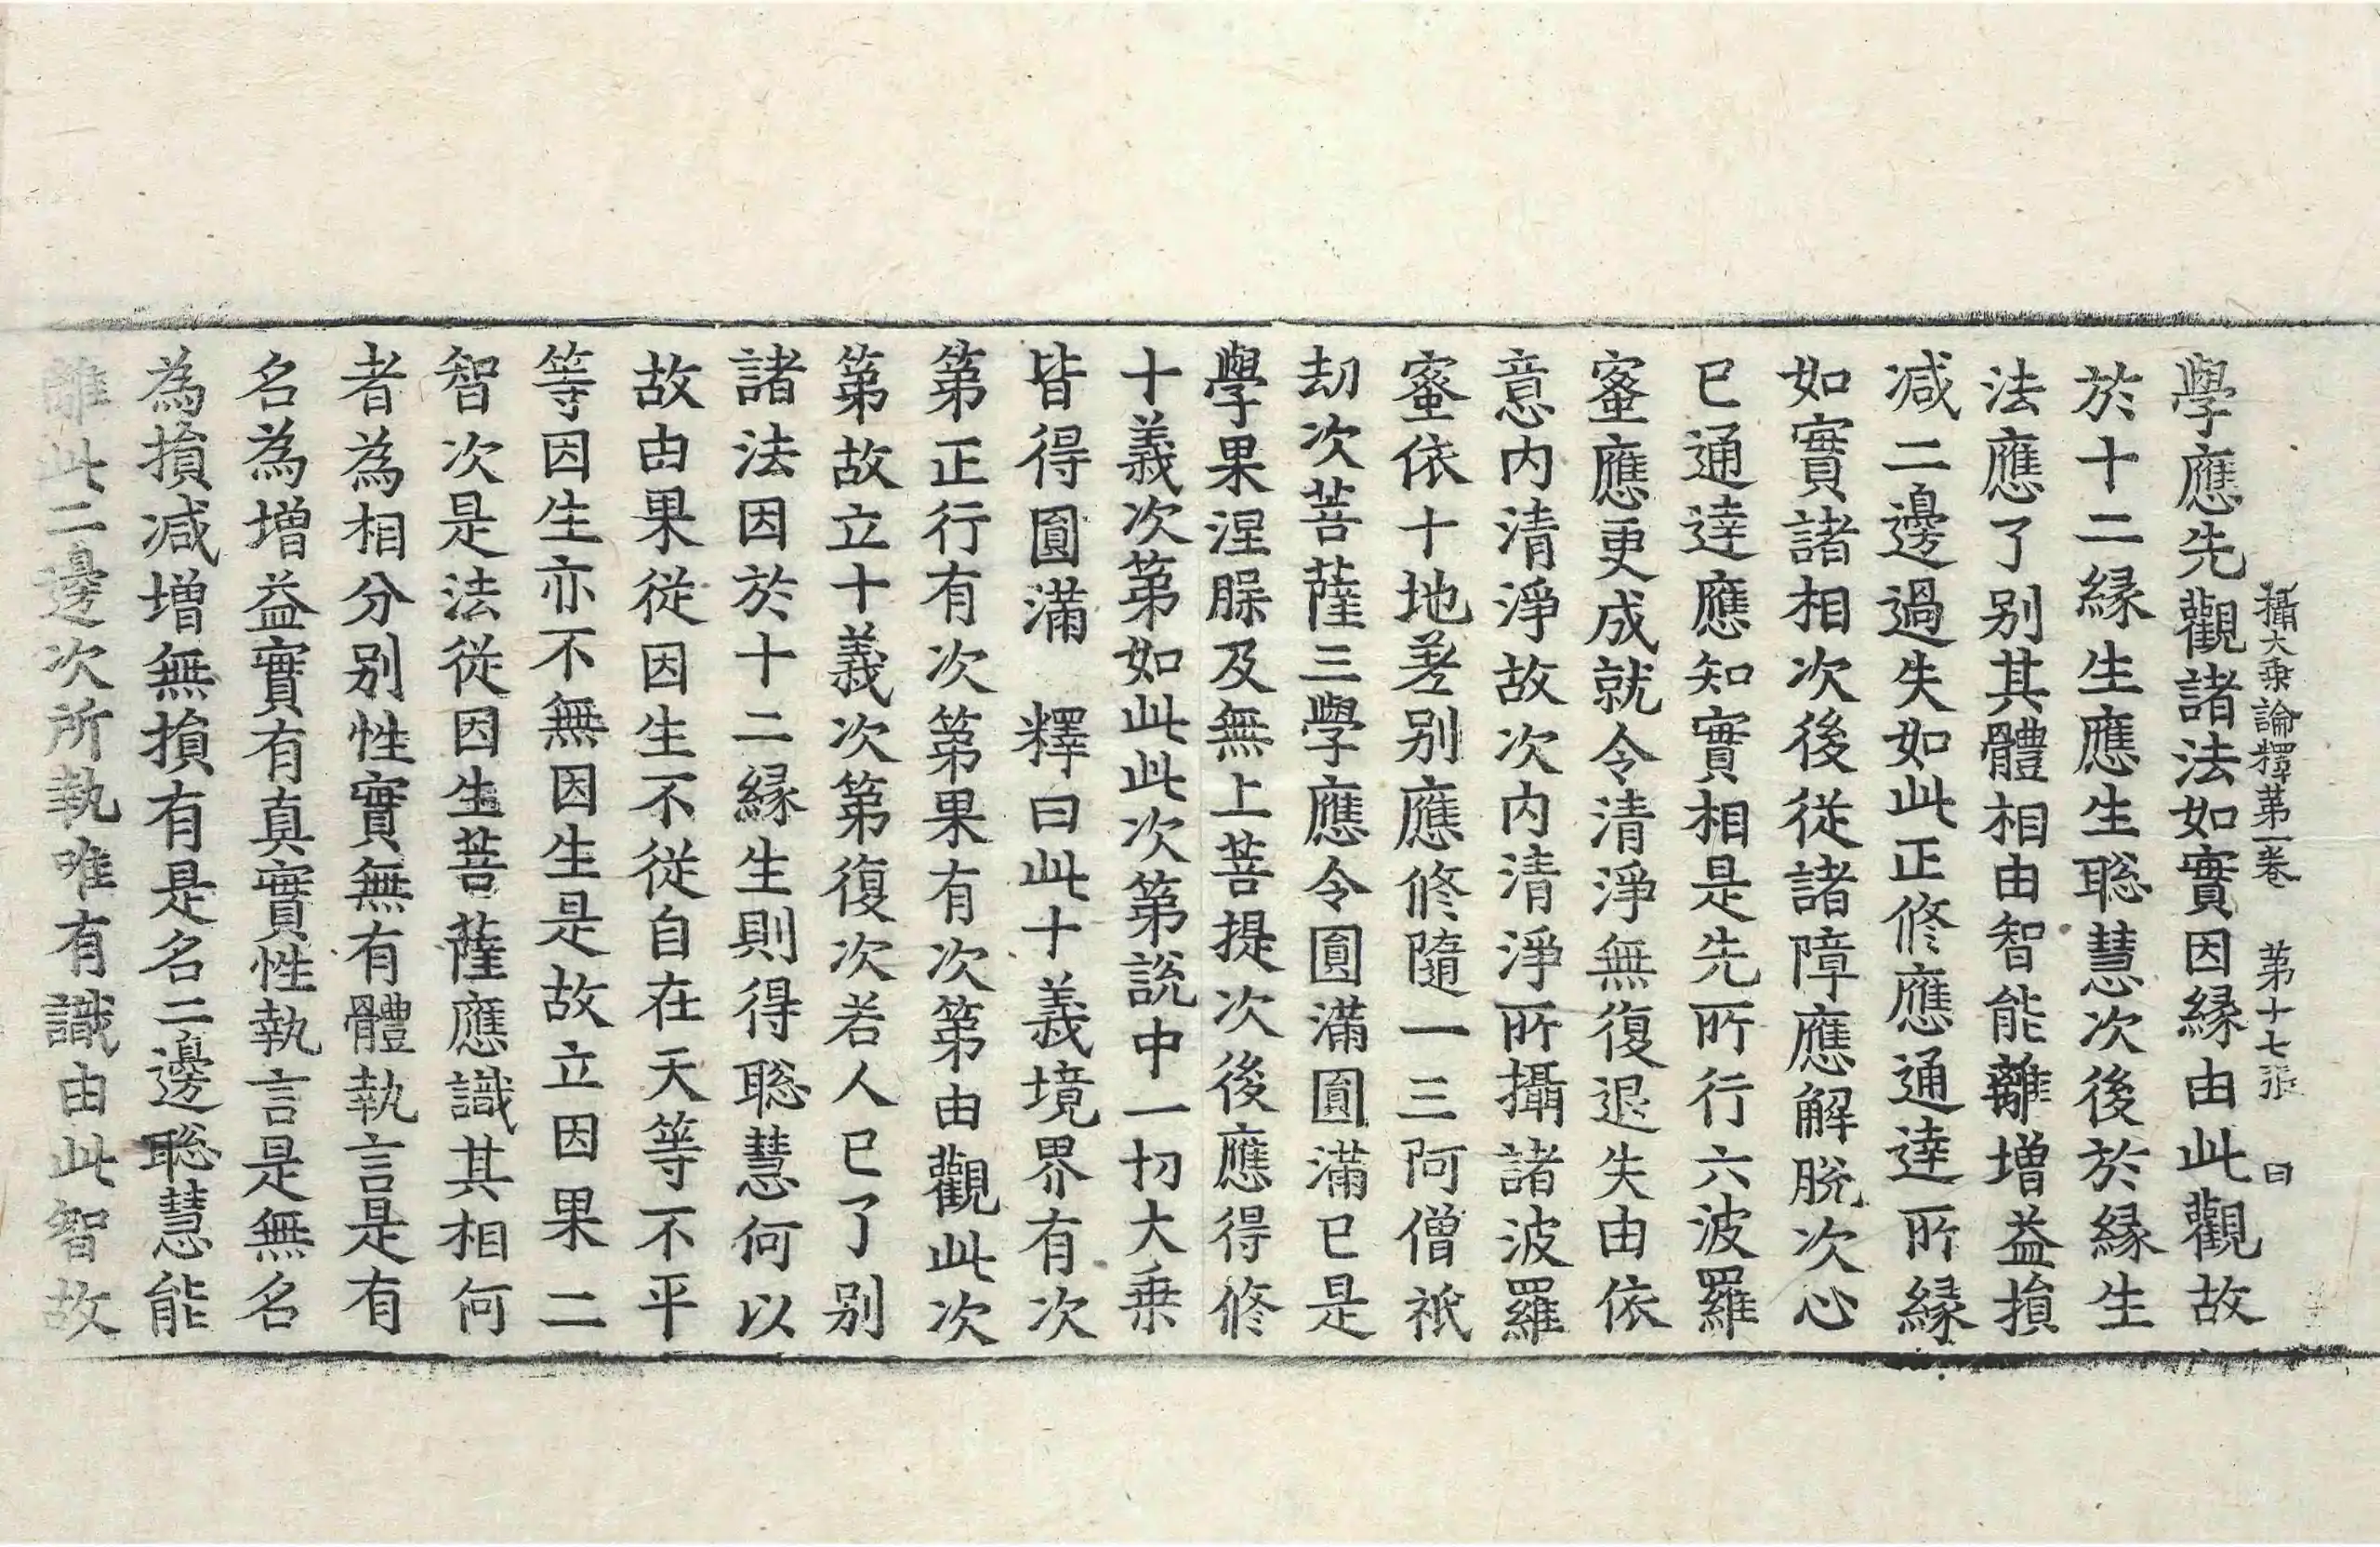 攝大乘論釋第一卷　第十七張　曰
學應先觀諸法如實因縁由此觀故
於十二縁生應生聡慧次後於縁生
法應了别其體相由智能離增益損
减二邊過失如此正修應通達所縁
如實諸相次後從諸障應解脱次心
已通達應知實相是先所行六波羅
蜜應更成就令清淨無復退失由依
意内清淨故次内清淨所攝諸波羅
蜜依十地差别應修隨一三阿僧祇
劫次菩薩三學應令圓滿圓滿已是
學果涅槃及無上菩提次後應得修
十義次第如此此次第説中一切大乗
皆得圓滿　釋曰此十義境界有次
第正行有次第果有次第由觀此次
第故立十義次第復次若人已了别
諸法因於十二縁生則得聡慧何以
故由果從因生不從自在天等不平
等因生亦不無因生是故立因果二
智次是法從因生菩薩應識其相何
者為相分别性實無有體執言是有
名為增益實有真實性執言是無名
為損减增無損有是名二邊聡慧能
離此二邊次所執唯有識由此智故